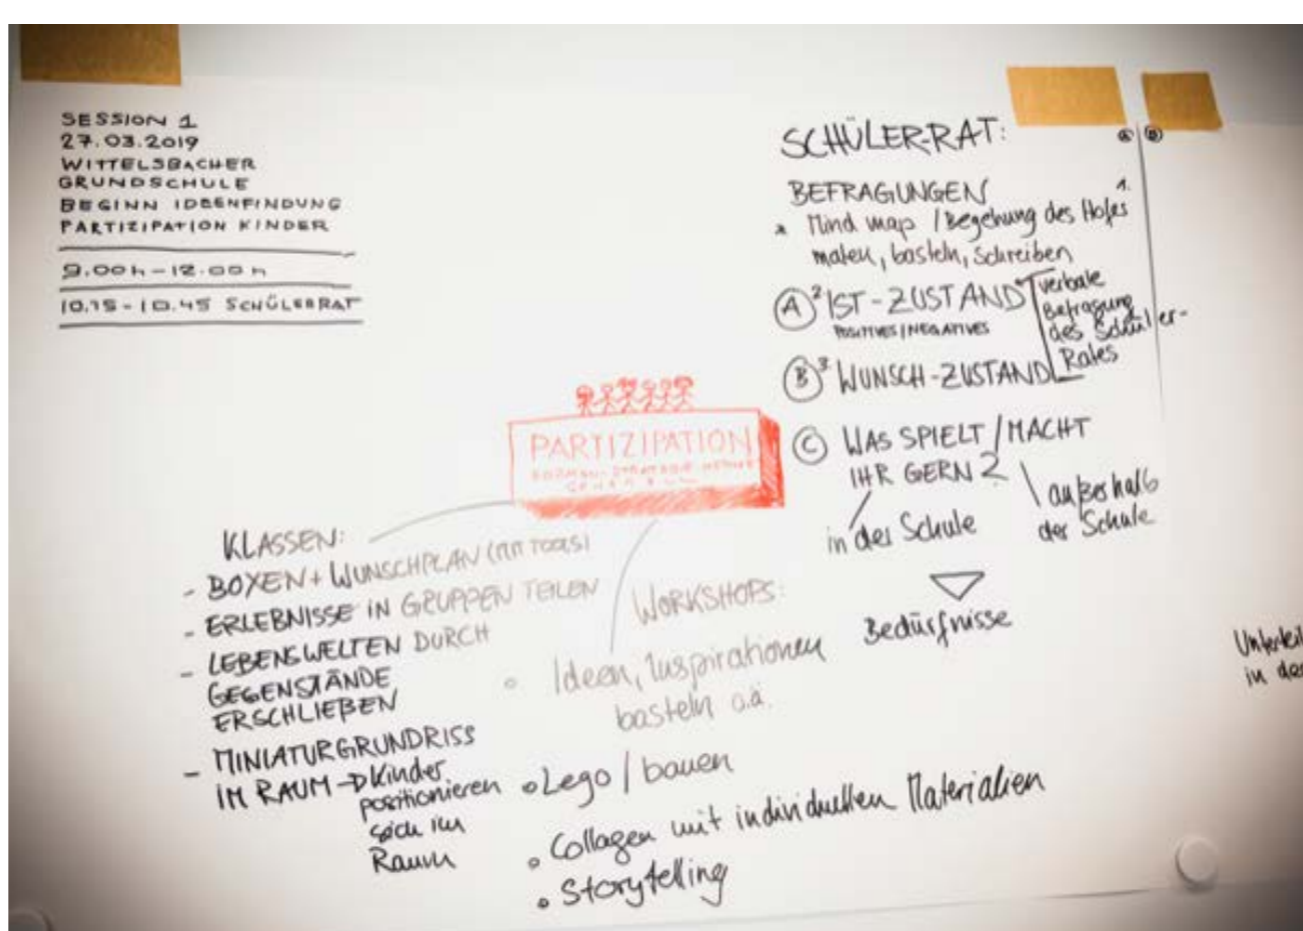 SESSION 1
27.03.2019
WITTELSBACHER
GRUNDSCHULE
BEGINN IDEENFINDUNG
PARTIZIPATION KINDER
9.00h-12.00h
10.15-10.45 SCHÜLERRAT
SCHÜLER-RAT:
A B
BEFRAGUNGEN
1.
* Mind map / Begehung des Hofes
malen, basteln, Schreiben
A 2 IST-ZUSTAND
POSITIVES/NEGATIVES
verbale
Befragung
des Schüler-
Rates
B 3 WUNSCH-ZUSTAND
C WAS SPIELT/MACHT
IHR GERN?
in der Schule
außerhalb
der Schule
Bedürfnisse
PARTIZIPATION
KLASSEN:
- BOXEN + WUNSCHPLAN (MIT TOOLS)
- ERLEBNISSE IN GRUPPEN TEILEN
- LEBENSWELTEN DURCH
GEGENSTÄNDE
ERSCHLIEßEN
- MINIATURGRUNDRISS
IM RAUM → Kinder
positionieren
sich im
Raum
WORKSHOPS:
° Ideen, Inspirationen
basteln o.ä.
° Lego / bauen
° Collagen mit individuellen Materialien
° Storytelling
Unterteil
in der